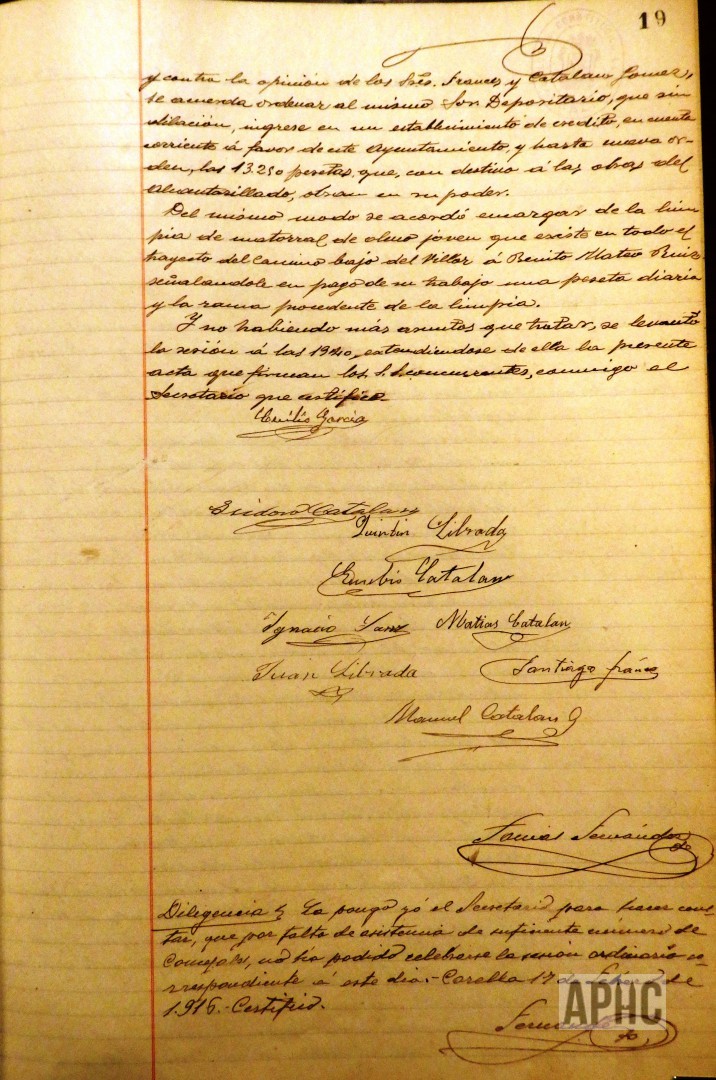 19
y contra la opinión de los Sres. Frances y Catalan Gomez,
se acuerda ordenar al mismo Son Depositario, que sin
dilación, ingrese en un establecimiento de credito, en cuenta
corriente á favor de este Ayuntamiento, y hasta nueva or-
den, las 13.250 pesetas, que, con destino á las obras del
alcantarillado, obran en su poder.
Del mismo modo se acordó encargar de la lim
pia de matorral de olmo joven que existe en todo el
trayecto del Camino bajo del Villar á Benito Mateo Ruiz
señalandole en pago de su trabajo una peseta diaria
y la rama procedente de la limpia.
Y no habiendo más asuntos que tratar, se levantó
la sesión á las 19'40, extendiendose de ella la presente
acta que firman los S.S. concurrentes, conmigo el
Secretario que certifico
Emilio Garcia
Isidoro Catalan
Quintin Librada
Eusebio Catalan
Ignacio Sanz Matias Catalan
Juan Librada Santiago
Manuel Catalan G
Tomás Fernández
Diligencia La pongo yó el Secretario para hacer cons
tar, que por falta de asistencia de suficiente número de
Concejales, no ha podido celebrarse la sesión ordinaria co
rrespondiente á este dia.- Corella 17 de de
1.916.- Certifico.
APHC